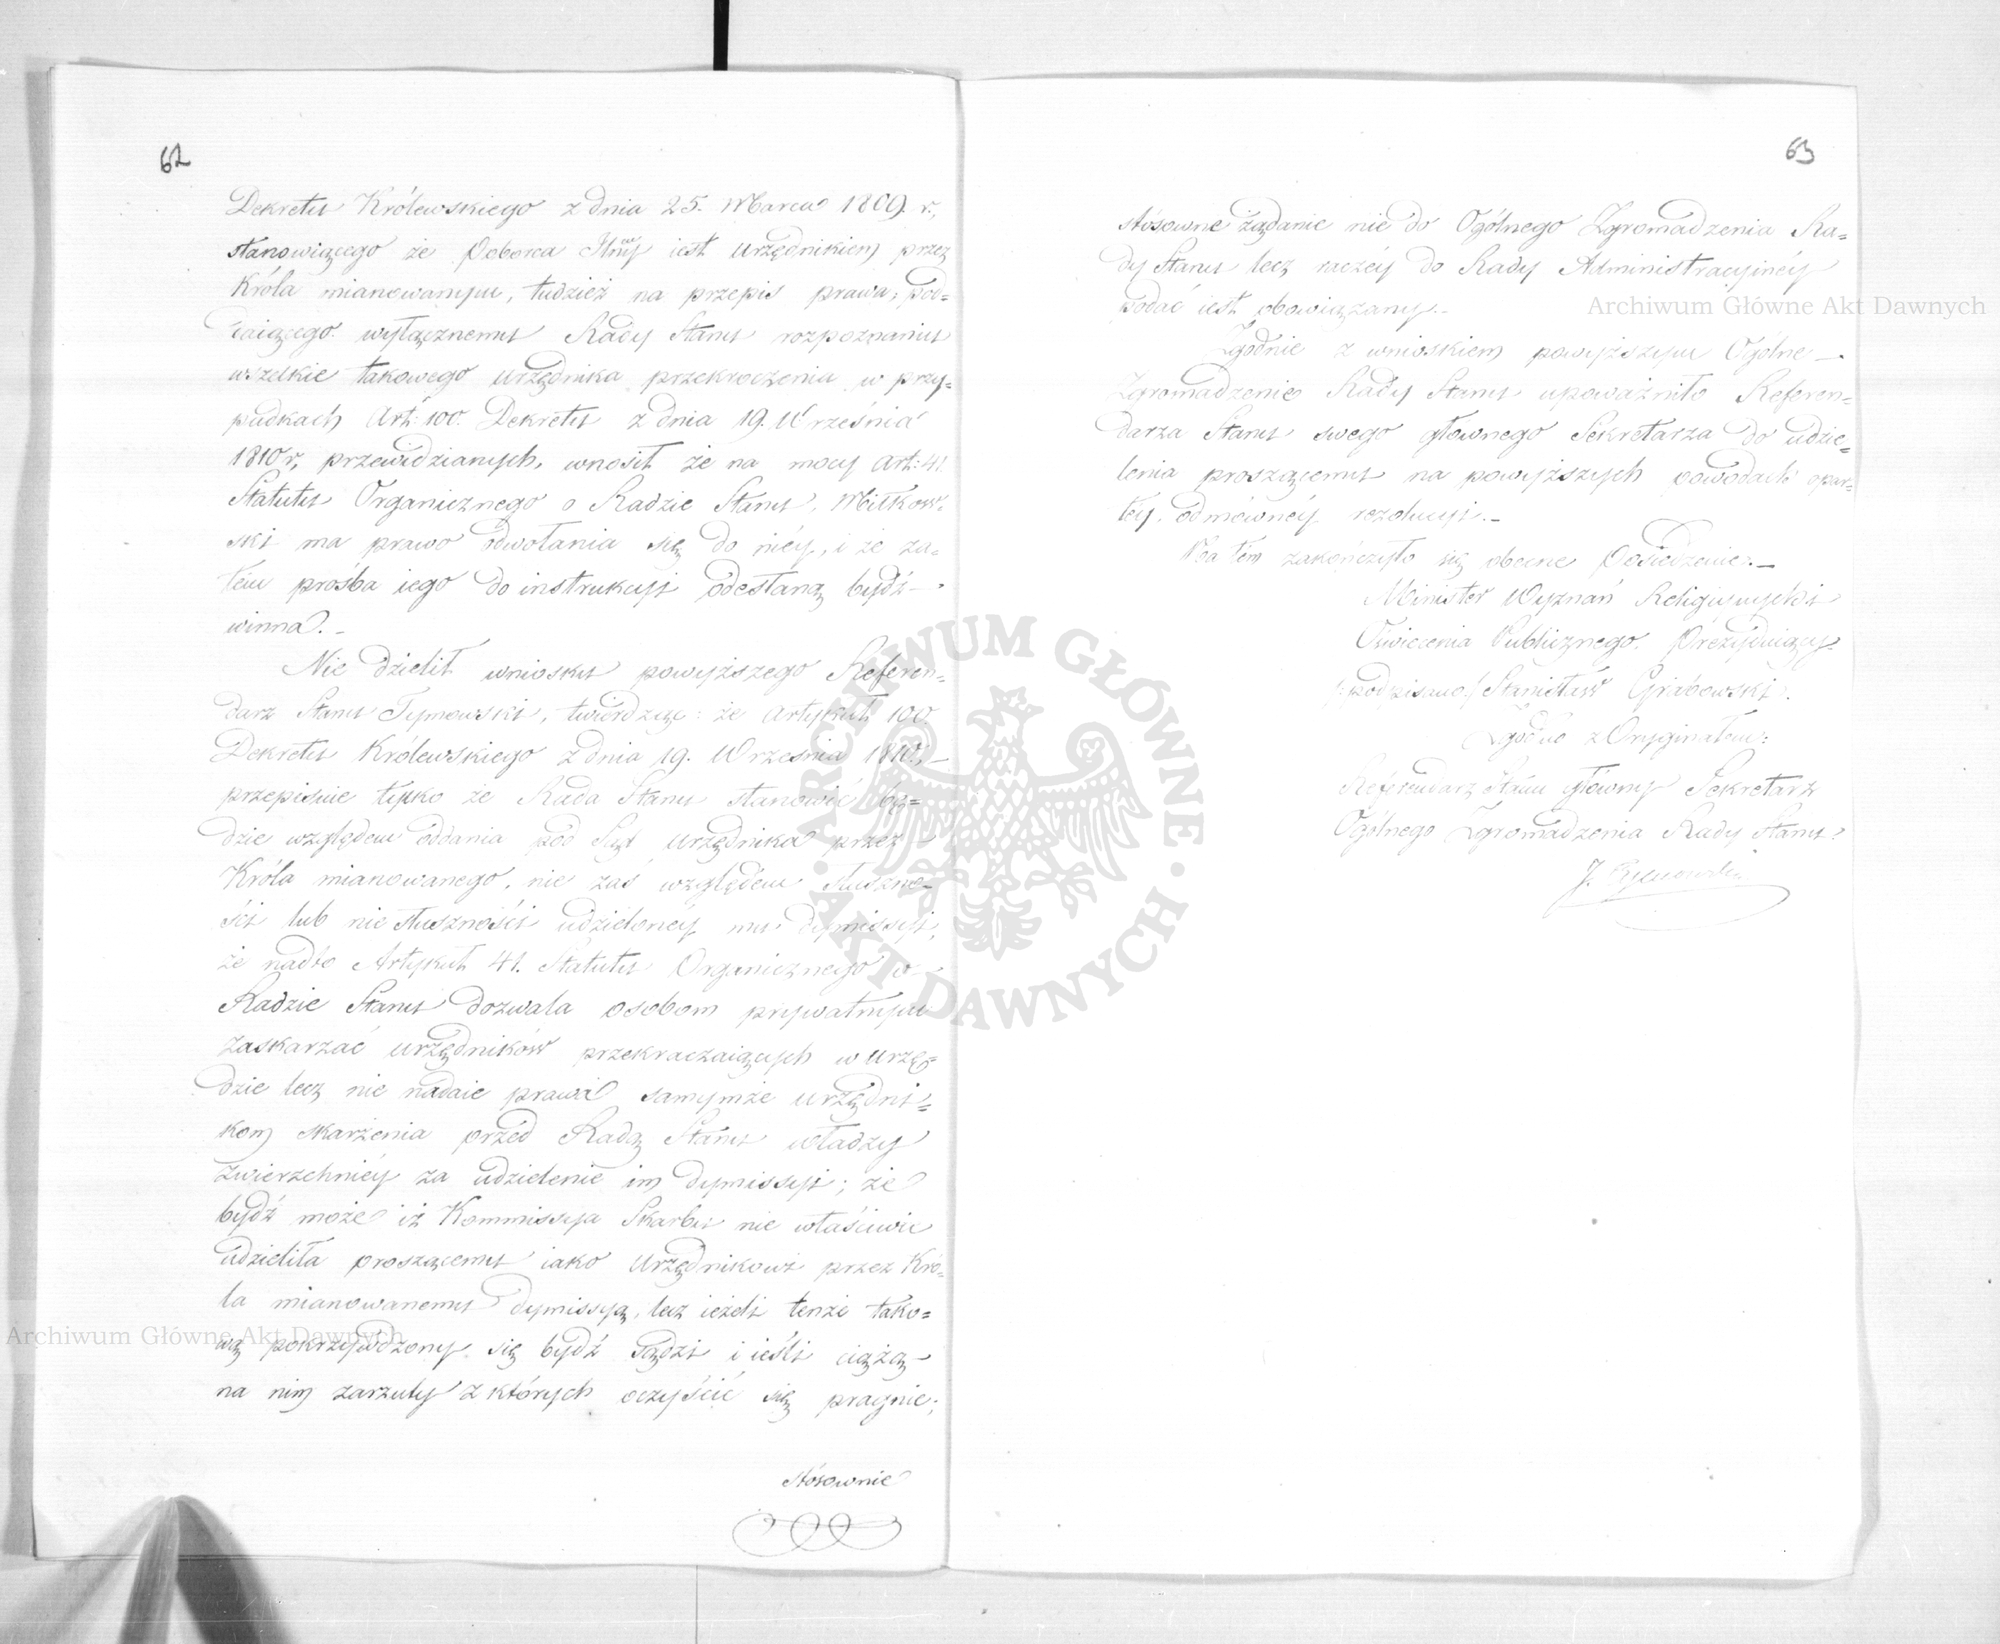 62
Dekretu Królewskiego z dnia 25. Marca 1809. r.,
stanowiącego że Poborca iest urzędnikiem przez
Króla mianowanym, tudzież na przepis prawa, pod=
daiącego wyłącznemu Rady Stanu rozpoznaniu
wszelkie takowego urzędnika przekroczenia w przy-
padkach Art: 100. Dekretu z dnia 19. Września
1810 r, przewidzianych, wnosił że na mocy Art: 41.
Statutu Organicznego o Radzie Stanu, Miłkow-
ski ma prawo odwołania się do niéy, i że za-
tém prośba iego do instrukcyi odesłaną bydź —
winna. —
Nie dzielił wniosku powyższego Referen-
darz Stanu Tymowski, twierdząc: że Artykuł 100.
Dekretu Królewskiego z dnia 19. Września 1810., —
przepisuie tylko że Rada Stanu stanowić bę=
dzie względem oddania pod Sąd urzędnika przez —
Króla mianowanego, nie zaś względem słuszno-
ści lub nie słuszności udzielonéy mu dymissyi,
że nadto Artykuł 41. Statutu Organicznego o
Radzie Stanu dozwala osobom prywatnym
zaskarzać urzędników przekraczaiących w urzę=
dzie lecz nie nadaie prawa samymże urzędni=
kom skarżenia przed Radą Stanu władzy
zwierzchniéy za udzielenie im dymissyi; że
bydź może iż Kommissya Skarbu nie właściwie
udzieliła proszącemu iako urzędnikowi przez Kró-
la mianowanemu dymissyą, lecz ieżeli tenże tako=
wą pokrzywdzony się bydź sądzi i ieśli ciążą —
na nim zarzuty z których oczyścić się pragnie;
stósownie
63
stósowne żądanie nie do Ogólnego Zgromadzenia Ra=
dy Stanu lecz raczéy do Rady Administracyinéy
podać iest obowiązany. —
Zgodnie z wnioskiem powyższym Ogólne —
Zgromadzenie Rady Stanu upoważniło Referen=
darza Stanu swego głownego Sekretarza do udzie=
lenia proszącemu na powyższych powodach opar=
téy, odmównéy rezolucyi. —
Na tém zakończyło się obecne Posiedzenie. —
Minister Wyznań Religijnych i
Oświecenia Publicznego, Prezyduiący
/podpisano/ Stanisław Grabowski.
Zgodno z Oryginałem:
Referendarz Stanu Główny Sekretarz
Ogólnego Zgromadzenia Rady Stanu
Archiwum Główne Akt Dawnych
Archiwum Główne Akt Dawnych
ARCHIWUM GŁÓWNE
AKT DAWNYCH